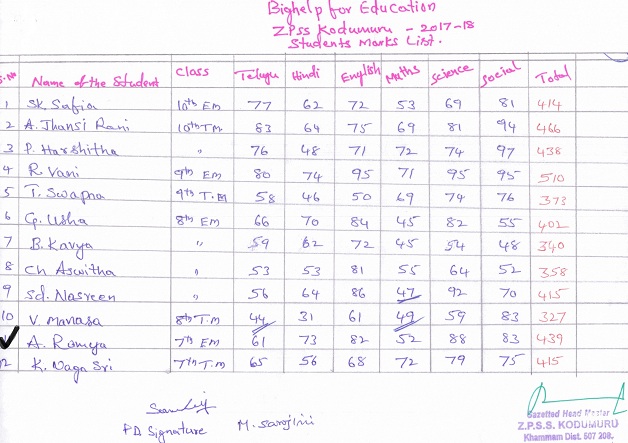 Bighelp for Education
ZPSS Kodumuru - 2017-18
Students Marks List.
S.No Name of the Student Class Telugu Hindi English Maths Science Social Total
1 Sk. Safia 10th EM 77 62 72 53 69 81 414
2 A. Jhansi Rani 10th T.M 83 64 75 69 81 94 466
3 P. Harshitha " 76 48 71 72 74 97 438
4 R. Vani 9th EM 80 74 95 71 95 95 510
5 T. Swapna 9th T.M 58 46 50 69 74 76 373
6 G. Usha 8th EM 66 70 84 45 82 55 402
7 B. Kavya " 59 62 72 45 54 48 340
8 Ch Aswitha " 53 53 81 55 64 52 358
9 Sd. Nasreen " 56 64 86 47 92 70 415
10 V. Manasa 8th T.M 44 31 61 49 59 83 327
A. Ramya 7th EM 61 73 82 52 88 83 439
12 K. Naga Sri 7th T.M 65 56 68 72 79 75 415
PD Signature M. Sarojini
Gazetted Head Master
Z.P.S.S. KODUMURU
Khammam Dist. 507 208.